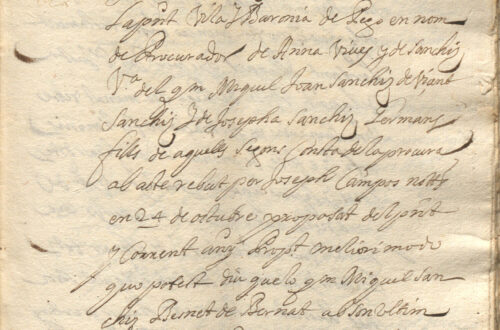 la pnt Vila y Baronia de Pego en nom
de Procurador de Anna Vives y de Sanchiz
Vª del qm Miquel Joan Sanchiz de
Sanchiz y de Josepha Sanchiz Germans
fills de aquells segons consta de la procura
ab acte rebut per Joseph Campos nott
en 24 de octubre proposat del pnt
y corrent any Propt meliori modo
quo potest diu que lo qm Miquel San
chiz Benet de Bernat ab son ultim